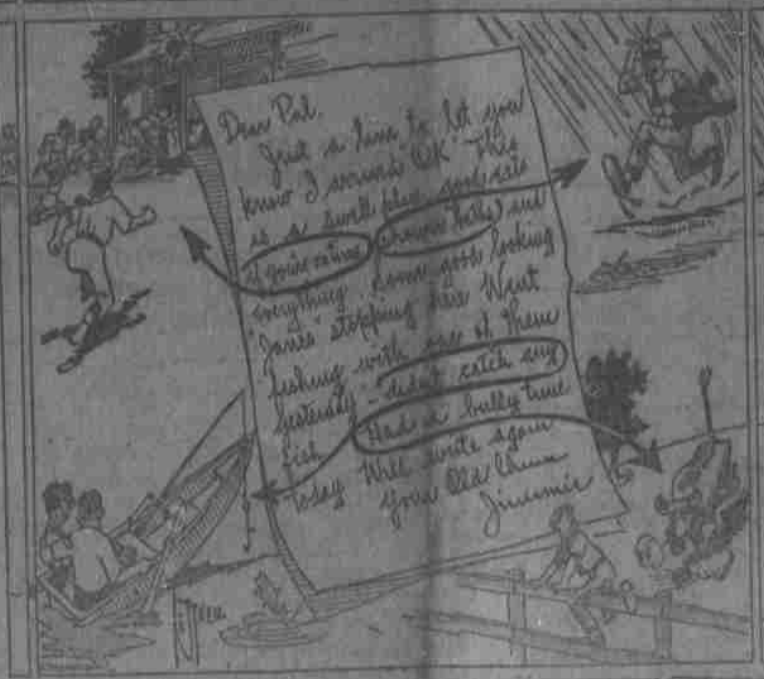 Dear Pal,
Just a line to let you
know I arrived OK This
is a swell place
shower baths and
everything. Some good looking
"Janes" stopping here Went
fishing with one of them
yesterday - didn't catch any
fish Had a bully time
today Will write again
your Old Chum
Jimmie